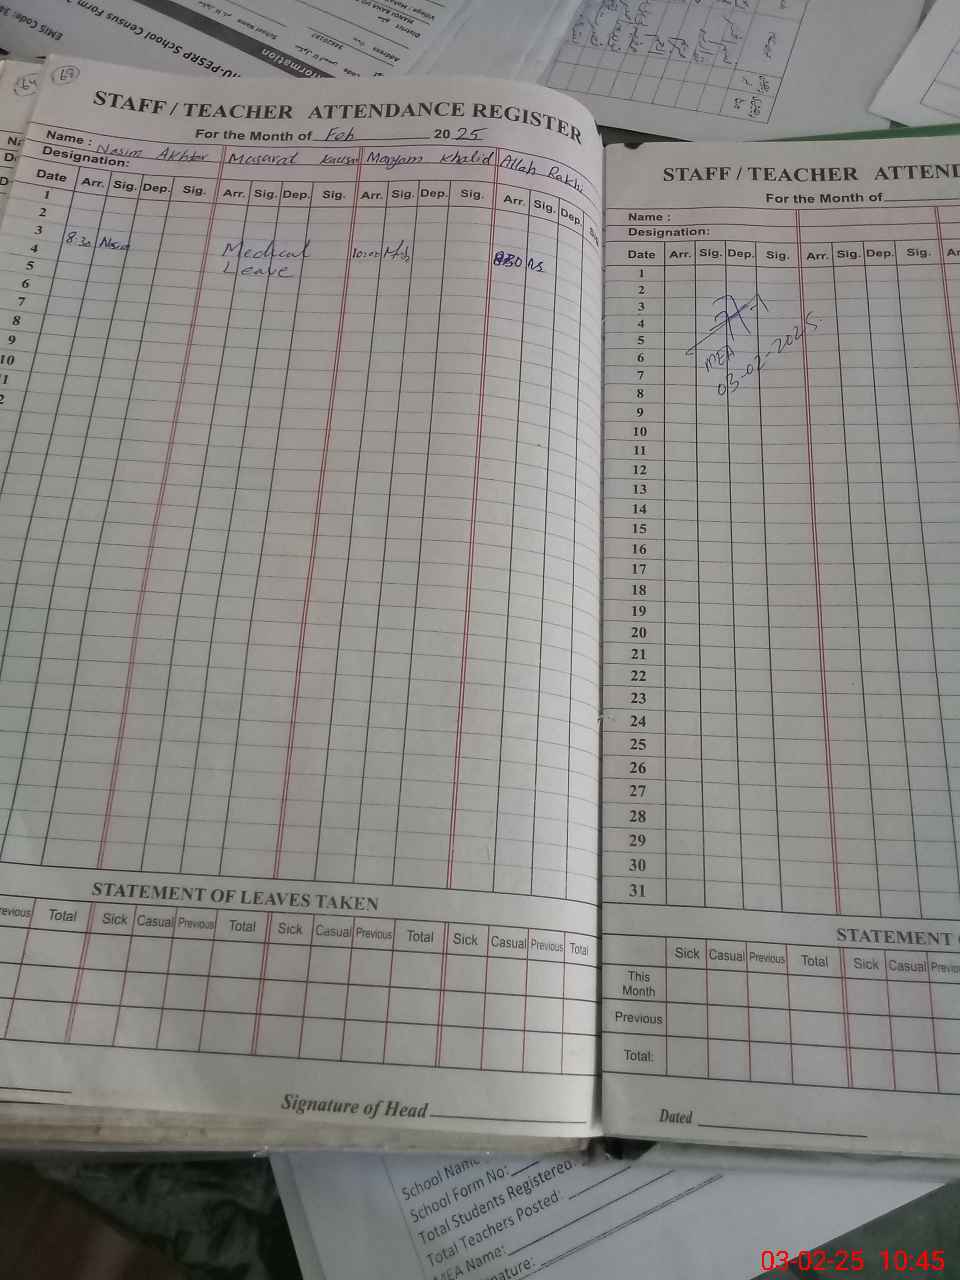 EMIS Code: 36
TU-PESRP School Census Form
formation
School Name
36620187
Address
District
69
64
STAFF / TEACHER ATTENDANCE REGISTER
For the Month of Feb 2025
Name : Nasim Akhtar Musarat Kausar Maryam Khalid Allah Rakhi
Designation:
Date Arr. Sig. Dep. Sig. Arr. Sig. Dep. Sig. Arr. Sig. Dep. Sig. Arr. Sig. Dep. Sig
1
2
3 8:30 Nasim Medical Leave 10:00 830
4
5
6
7
8
9
10
STATEMENT OF LEAVES TAKEN
Previous Total Sick Casual Previous Total Sick Casual Previous Total Sick Casual Previous Total
Signature of Head
STAFF / TEACHER ATTEND
For the Month of
Name :
Designation:
Date Arr. Sig. Dep. Sig. Arr. Sig. Dep. Sig. Ar
1
2
3
4
5
6
7
8
9
10
11
12
13
14
15
16
17
18
19
20
21
22
23
24
25
26
27
28
29
30
31
MEA
03-02-2025.
STATEMENT
Sick Casual Previous Total Sick Casual Previo
This Month
Previous
Total:
Dated
School Name
School Form No:
Total Students Registered:
Total Teachers Posted:
MEA Name:
nature:
03-02-25 10:45